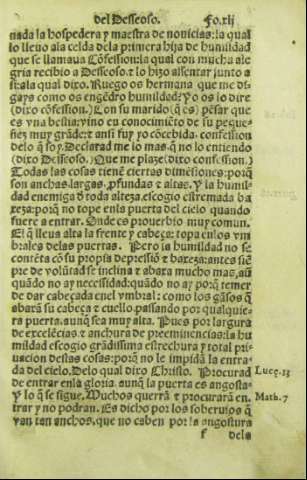 del Desseoso. Fo.xlj
tiada la hospedera y maestra de nouicias: la qual
lo lleuo ala celda dela primera hija de humildad
que se llamaua Cõfession: la qual con mucha ale
gria recibio a Desseoso: τ lo hizo assentar junto a
si: ala qual dixo. Ruego os hermana que me di
gays como os engẽdro humildad? Y o os lo dire
(dixo cõfession.) Con su marido (q̃ es) pẽsar que
es vna bestia: vino en conocimiẽto de su peque
ñez muy grãde: τ ansi fuy yo cõcebida, confession
delo q̃ soy. Declarad me lo mas, q̃ no lo entiendo
(dixo Desseoso.) Que me plaze (dixo confession.)
Todas las cosas tienẽ ciertas dimẽsiones: porq̃
son anchas, largas, p̃fundas τ altas. Y la humil
dad enemiga d̃ toda alteza, escogio estremada ba
xeza: porq̃ no tope enla puerta del cielo quando
fuere a entrar. Onde es prouerbio muy comun.
El q̃ lleua alta la frente y cabeça: topa enlos vm
brales delas puertas. Pero la humildad no se
contẽta cõ su propia depressiõ τ baxeza: antes siẽ
pre de volũtad se inclina τ abaxa mucho mas, aũ
quãdo no ay necessidad: quãdo no ay porq̃ temer
de dar cabeçada enel vmbral: como los gãsos q̃
abaxã su cabeça τ cuello, passando por qualquie
ra puerta, aunq̃ sea muy alta. Pues por largura
de excelẽcias: τ anchura de preeminencias: la hu
mildad escogio grãdissima estrechura y total pri
uacion destas cosas: porq̃ no le impidã la entra-
da del cielo. Delo qual dixo Christo. Procurad Luce. 13
de entrar enla gloria, aunq̃ la puerta es angosta
y lo q̃ se sigue. Muchos querrã τ procurarã en Math. 7
trar y no podran. Es dicho por los soberuios q̃
van tan anchos, que no caben por la angostura
f dela